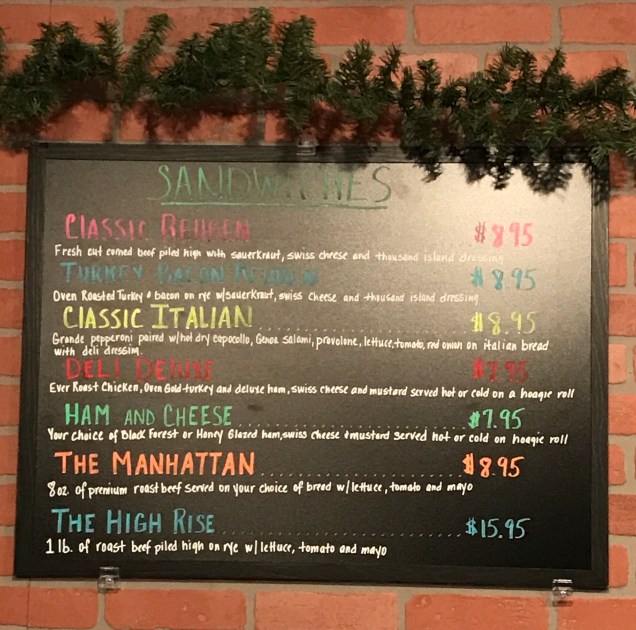 SANDWICHES
CLASSIC REUBEN $8.95
Fresh cut corned beef piled high with sauerkraut, swiss cheese and thousand island dressing
TURKEY BACON REUBEN $8.95
Oven Roasted Turkey & bacon on rye w/sauerkraut, swiss cheese and thousand island dressing
CLASSIC ITALIAN $8.95
Grande pepperoni paired w/hot dry capocollo, Genoa salami, provolone, lettuce, tomato, red onion on italian bread
with deli dressing.
DELI DELUXE $7.95
Ever Roast Chicken, Oven Gold turkey and deluxe ham, swiss cheese and mustard served hot or cold on a hoagie roll
HAM AND CHEESE $7.95
Your choice of Black Forest or Honey Glazed ham, swiss cheese & mustard served hot or cold on hoagie roll
THE MANHATTAN $8.95
8oz. of premium roast beef served on your choice of bread w/lettuce, tomato and mayo
THE HIGH RISE $15.95
1 lb. of roast beef piled high on rye w/lettuce, tomato and mayo